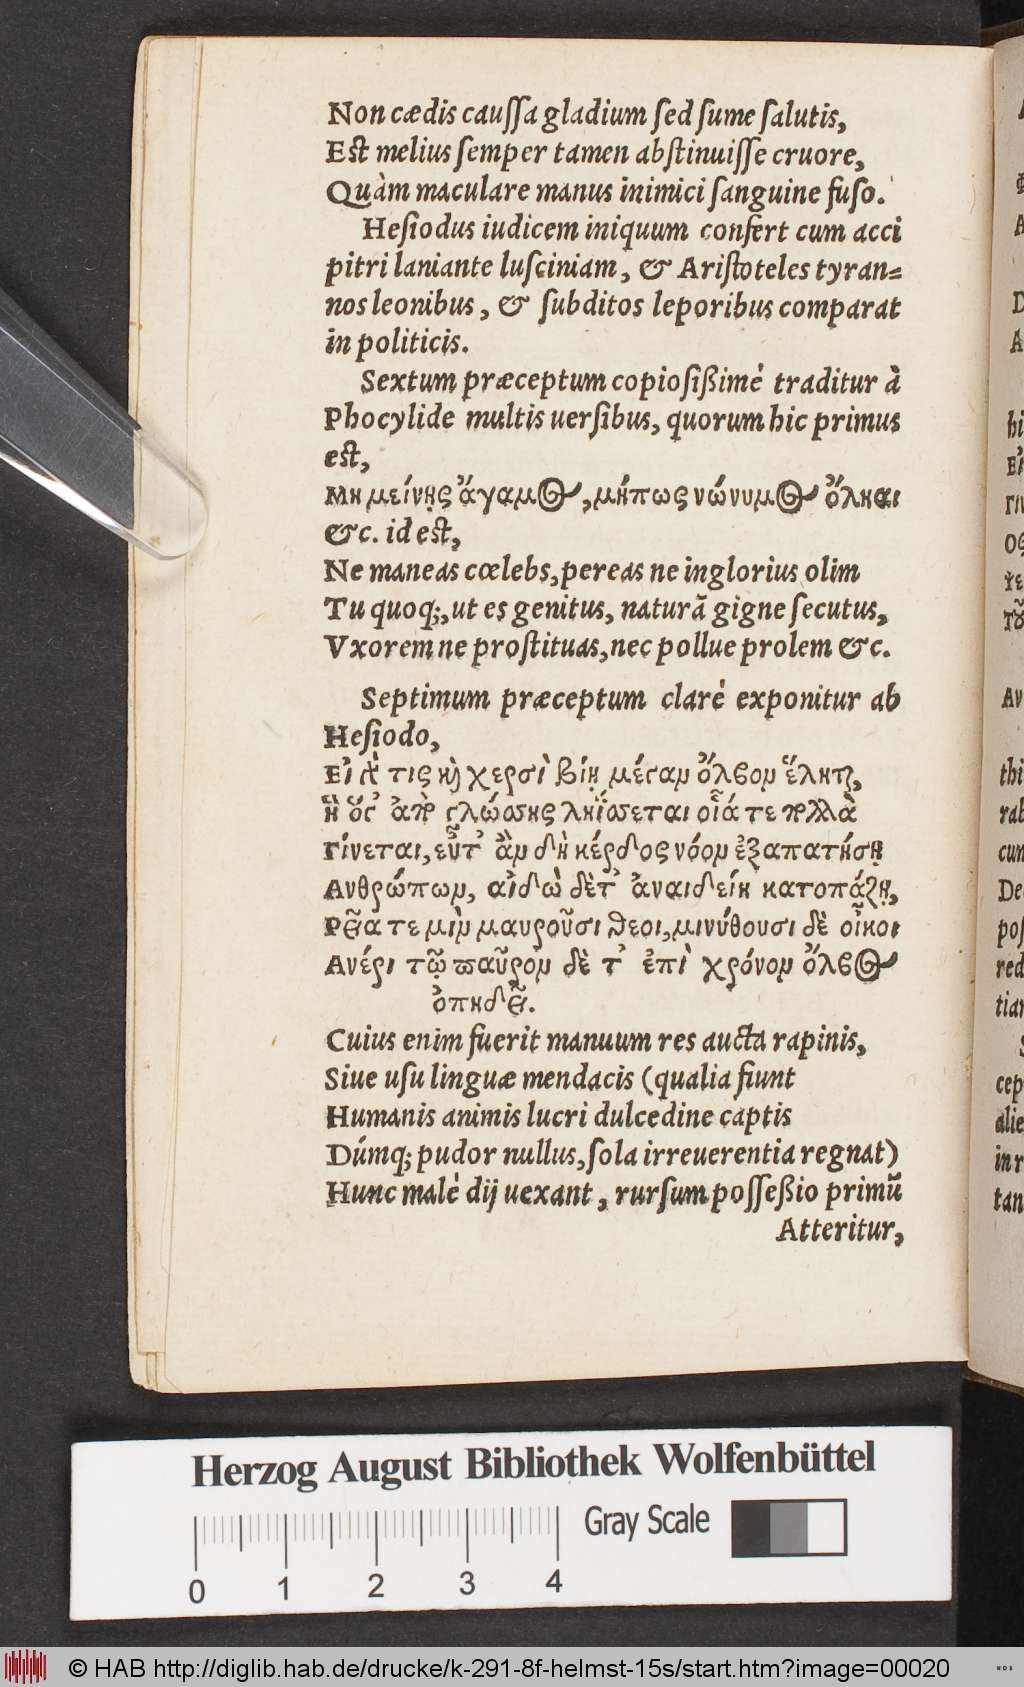 Non cædis cauſſa gladium ſed ſume ſalutis,
Est melius ſemper tamen abstinuiſſe cruore,
Quàm maculare manus inimici ſanguine fuſo.
Heſiodus iudicem iniquum confert cum acci
pitri laniante luſciniam, & Aristoteles tyran=
nos leonibus, & ſubditos leporibus comparat
in politicis.
Sextum præceptum copioſißimè traditur à
Phocylide multis uerſibus, quorum hic primus
est,
Μὴ μείνῃς ἄγαμος, μήπως νώνυμος ὄληαι
&c. id est,
Ne maneas cœlebs, pereas ne inglorius olim
Tu quoq;, ut es genitus, naturā gigne ſecutus,
Vxorem ne prostituas, nec pollue prolem &c.
Septimum præceptum clarè exponitur ab
Heſiodo,
Εἰ δέ τις καὶ χερσὶ βίῃ μέγαν ὄλβον ἕληται,
ἢ ὅγ' ἀπὸ γλώσσης ληΐσσεται οἷά τε πολλὰ
Γίνεται, εὖτ' ἂν δὴ κέρδος νόον ἐξαπατήσῃ
Ανθρώπων, αἰδὼ δέ τ' ἀναιδείη κατοπάζῃ,
Ρεῖα τε μιν μαυροῦσι θεοι, μινύθουσι δὲ οἶκοι
Ανέρι τῷ παῦρον δέ τ' ἐπὶ χρόνον ὄλβος
ὀπηδεῖ.
Cuius enim fuerit manuum res aucta rapinis,
Siue uſu linguæ mendacis (qualia fiunt
Humanis animis lucri dulcedine captis
Dúmq; pudor nullus, ſola irreuerentia regnat)
Hunc malè dij uexant, rurſum poſſeßio primū
Atteritur,
Herzog August Bibliothek Wolfenbüttel
Gray Scale
0 1 2 3 4
© HAB http://diglib.hab.de/drucke/k-291-8f-helmst-15s/start.htm?image=00020